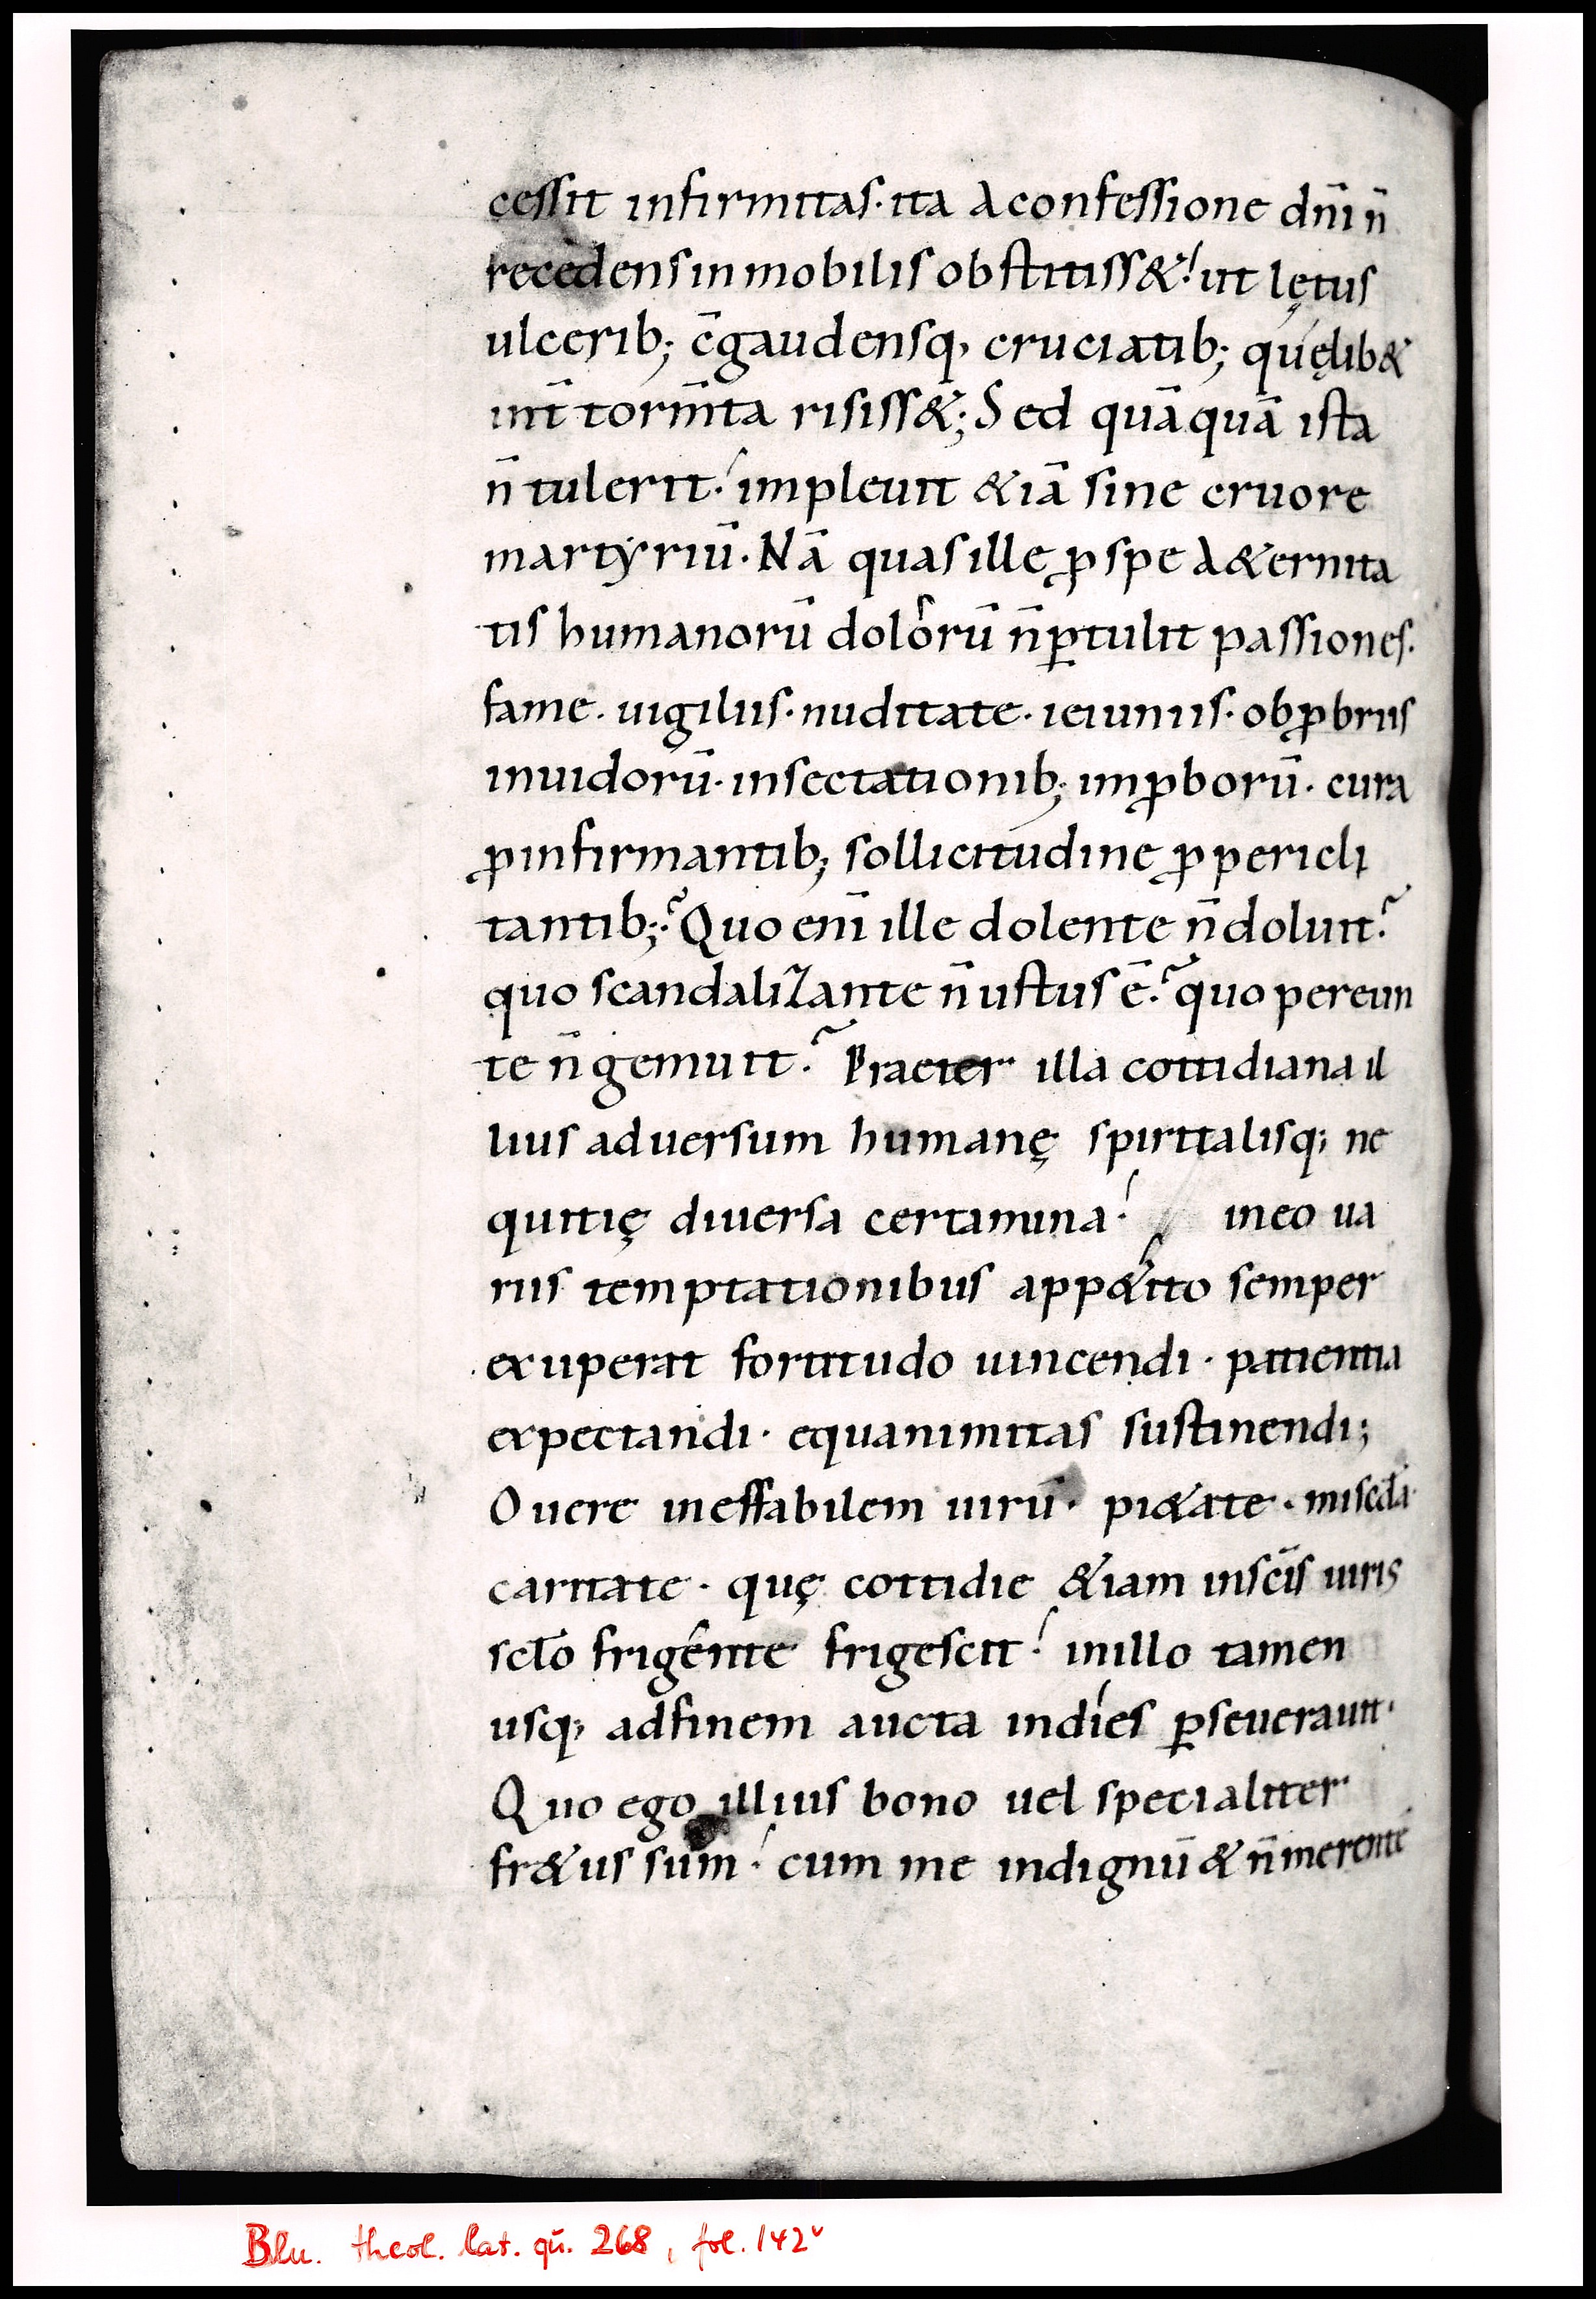 cessit infirmitas· ita A confessione dñi ñ
recedens inmobilis obstitiss&· ut lętus
ulcerib; c̄gaudensq, cruciatib; quęlib&
int̄ torm̄ta risiss&; Sed quā quā ista
ñ tulerit· impleuit &iā sine cruore
martyriū· Nā quas ille ꝓ spe A&ernita
tis humanorū dolorū ñ ꝑtulit passiones·
fame· uigiliis· nuditate· ieiuniis· obꝓbriis
inuidorū· insectationib; imꝓborū· cura
ꝓ infirmantib; sollicitudine ꝓ pericli
tantib;· Quo eni̅ ille dolente ñ doluit?
quo scandalizante ñ ustus ē? quo pereun
te ñ gemuit? Praeter illa cottidiana il
lius aduersum humanę spiritalisq; ne
quitię diuersa certamina· in eo ua
riis temptationibus app&ito semper
exuperat fortitudo uincendi· patientia
expectandi· equanimitas sustinendi;
O uere ineffabilem uirū· pi&ate· misc̄dia·
caritate· quę cottidie &iam in sc̄is uiris
sct̄o frigente frigescit· in illo tamen
usq, ad finem aucta indies ꝑseuerauit·
Quo ego illius bono uel specialiter
fr&us sum· cum me indignū & ñ merente
Bln. theol. lat. qu. 268, fol. 142v